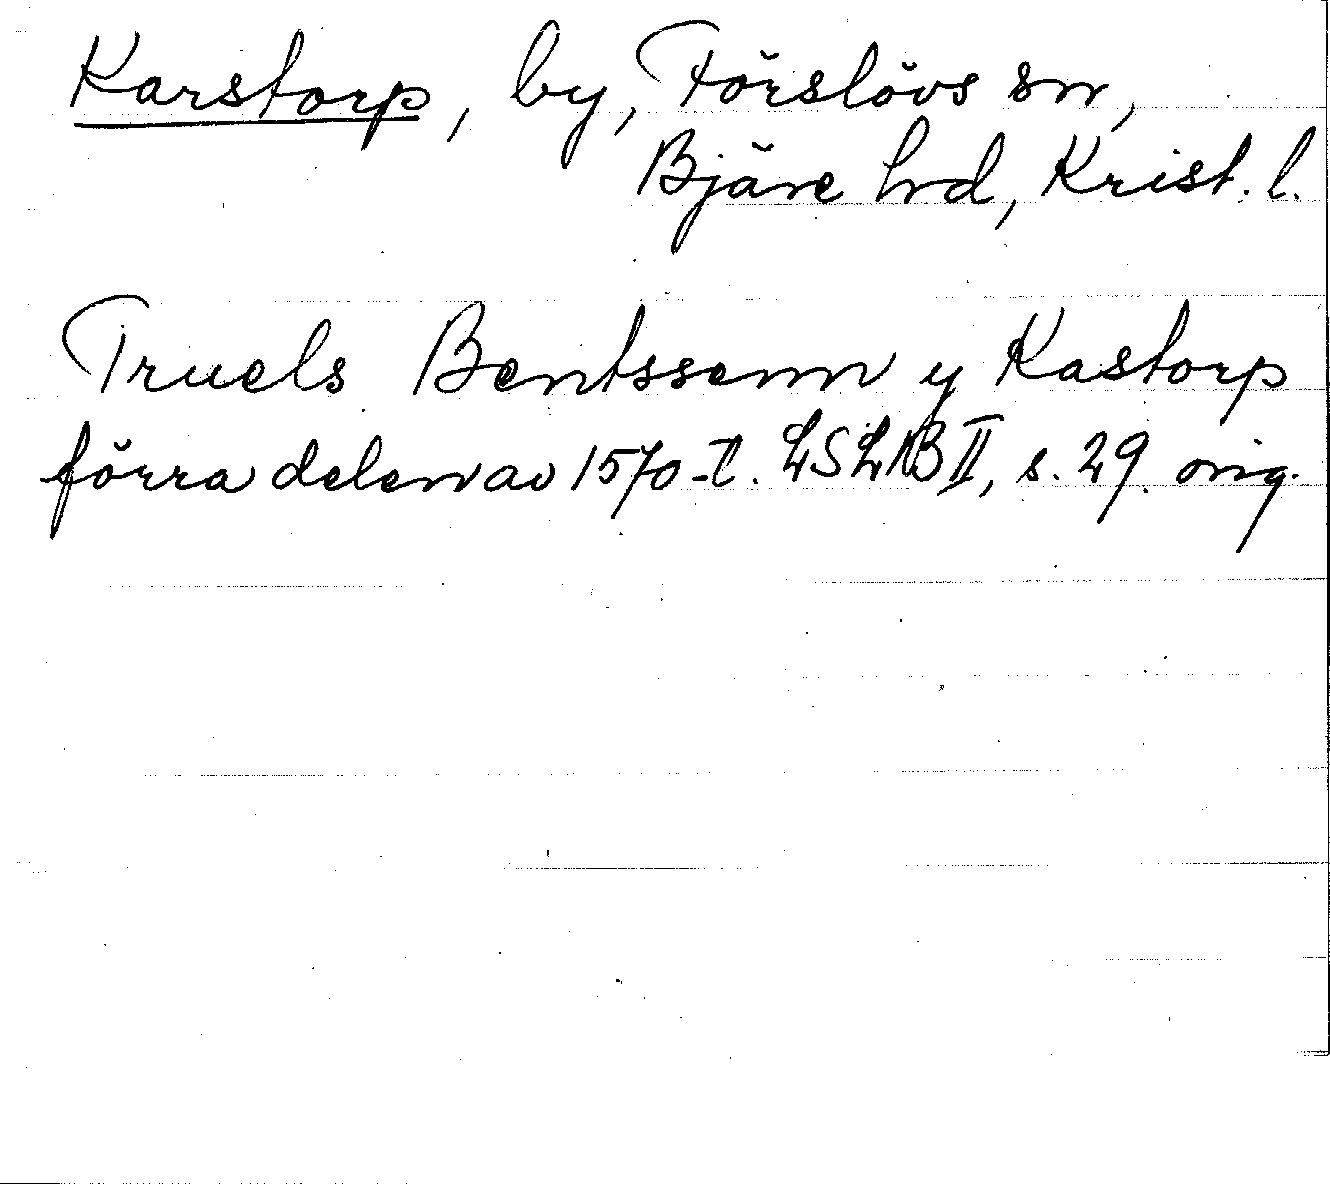 Karstorp, by, Förslövs sn,
Bjäre hd, Krist. l.
Truels Bentssenn y Kastorp
förra delen av 1570-t. LSLB II, s. 29. orig.